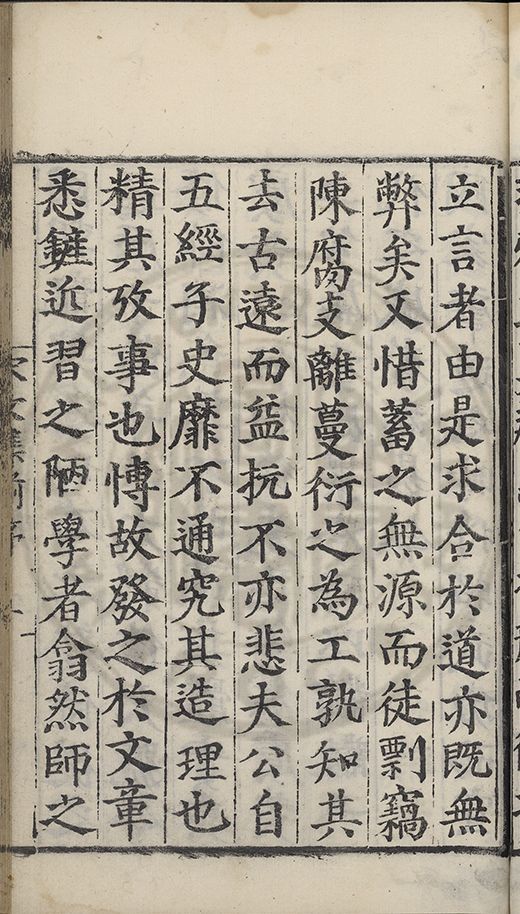 立言者由是求合於道亦既無
弊矣又惜蓄之無源而徒剽竊
陳腐支離蔓衍之為工孰知其
去古遠而益抏不亦悲夫公自
五經子史靡不通究其造理也
精其攷事也愽故發之於文章
悉鏟近習之陋學者翕然師之